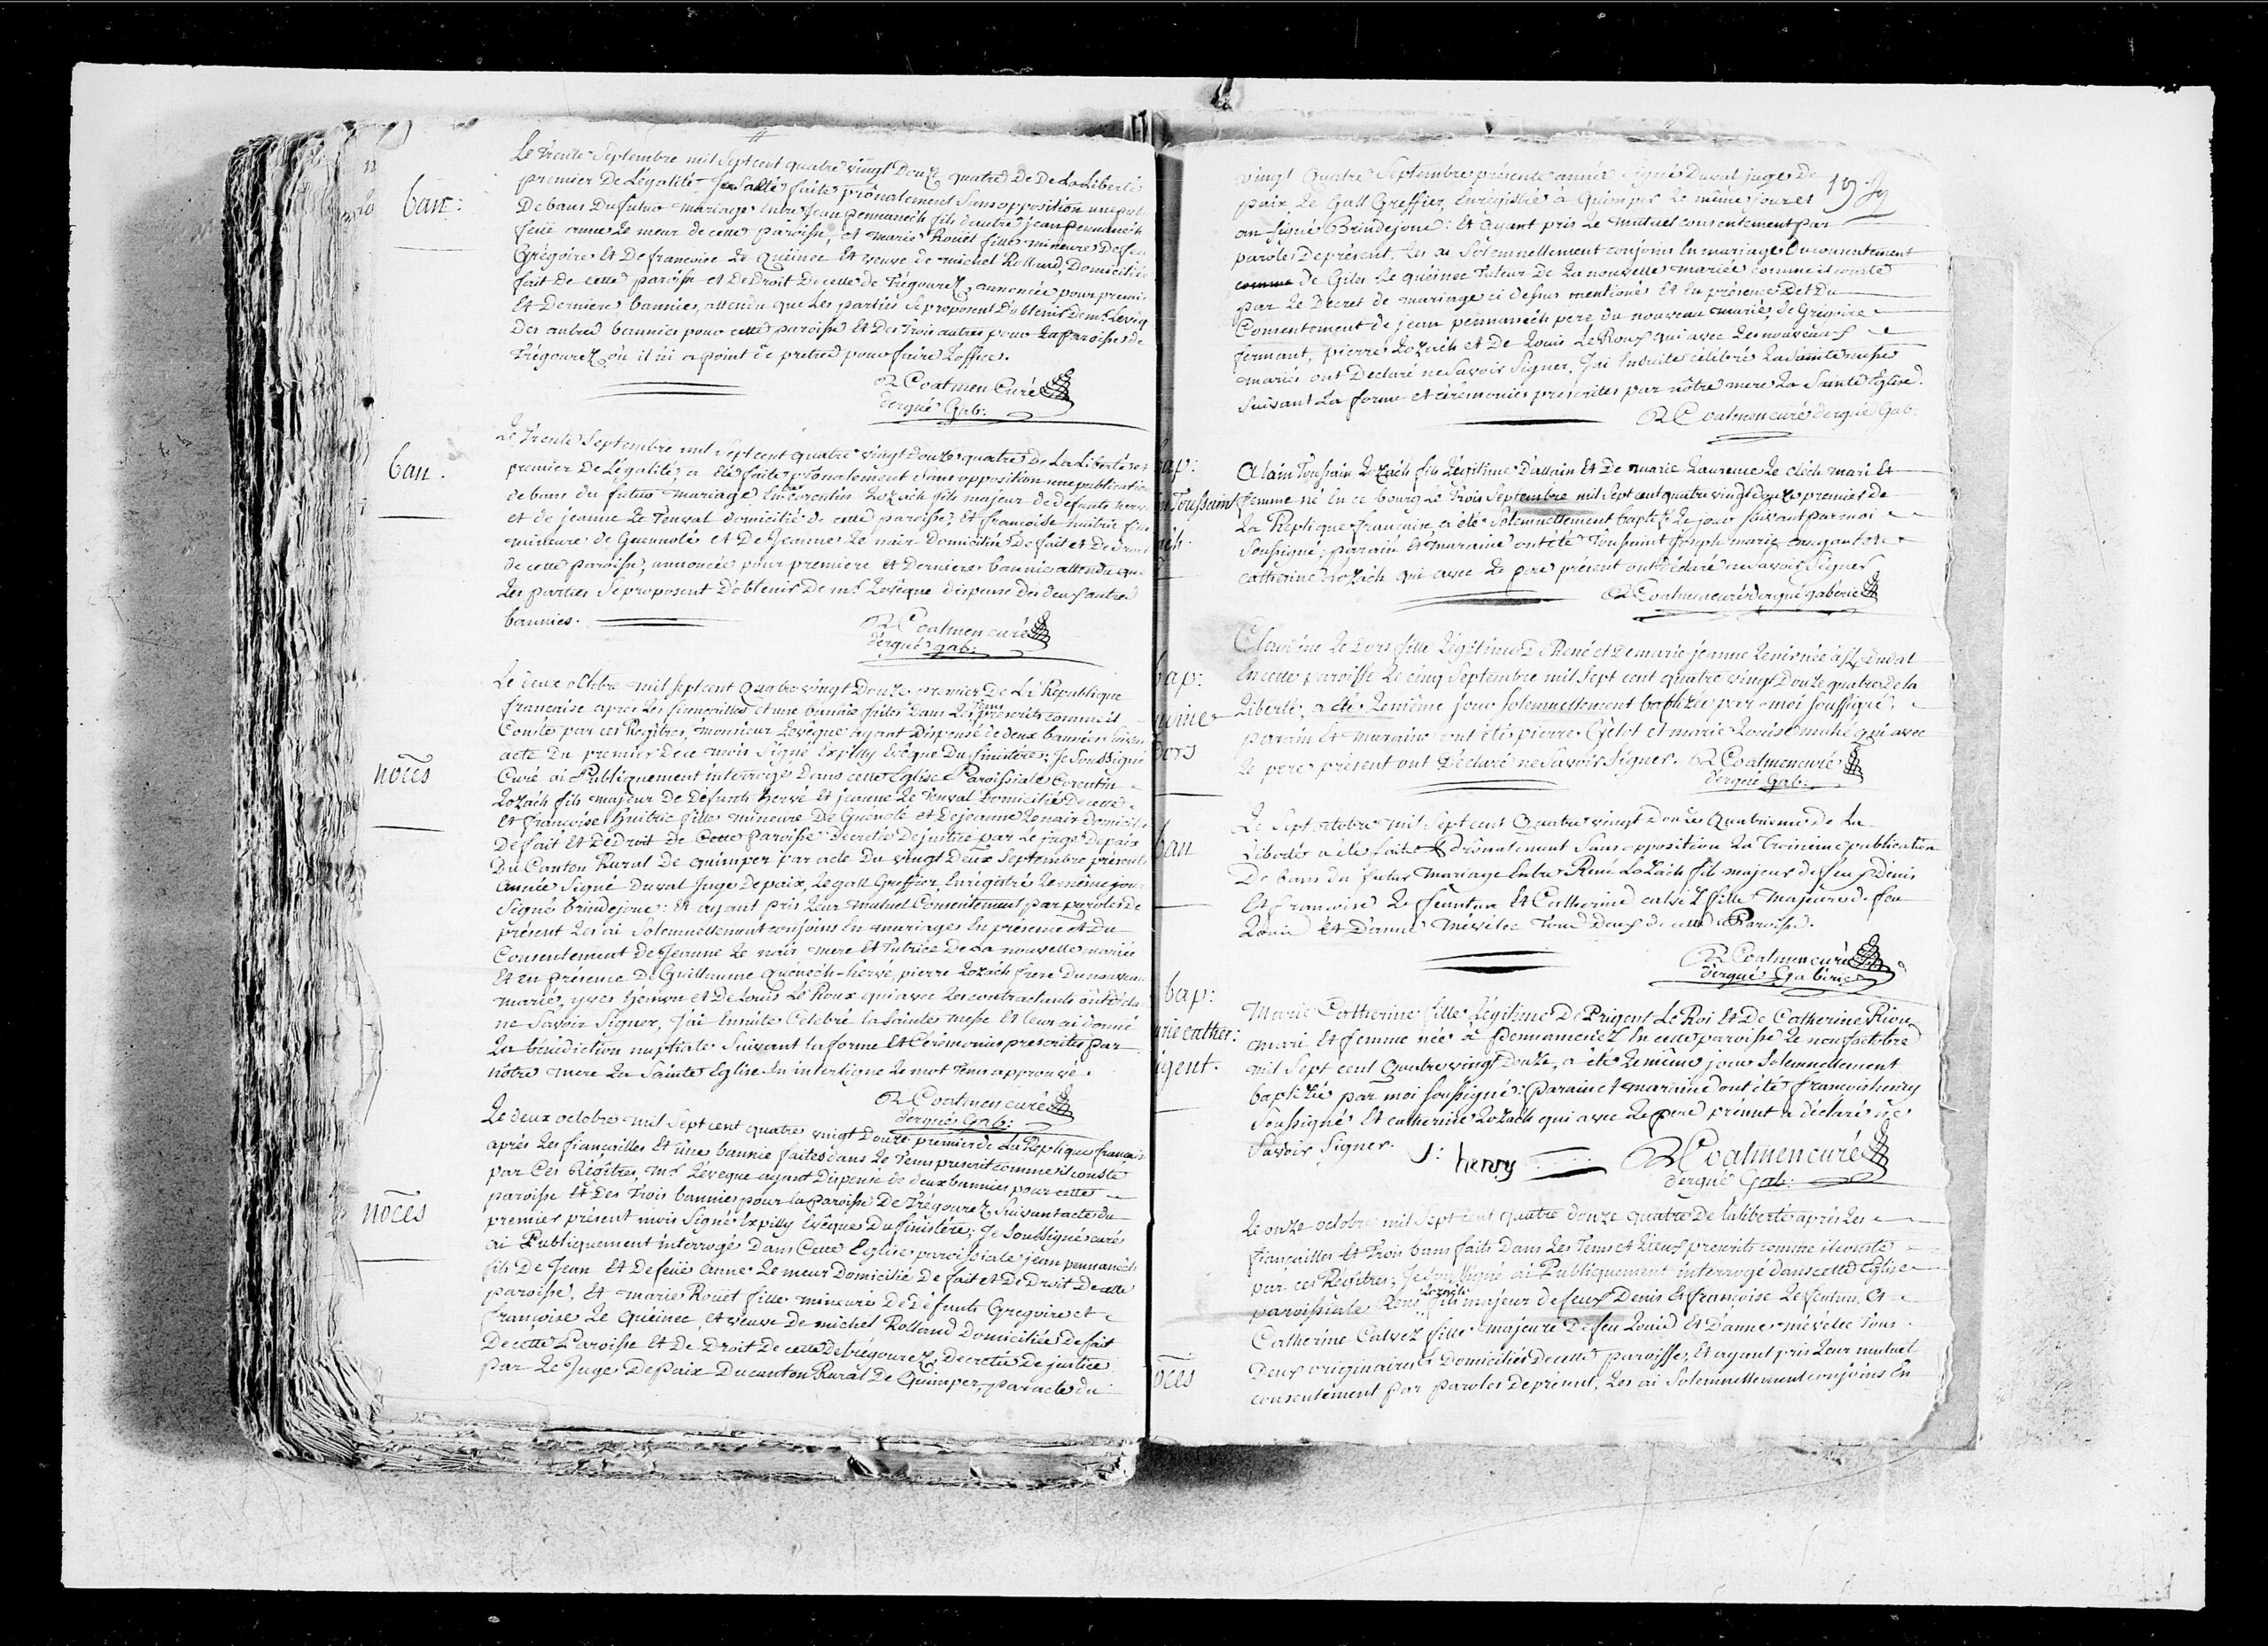 ban:
Le Trente Septembre mil Sept cent quatre vingt Douze quatre de De La Liberté
premier De Légalité, faite prônalement Sans opposition une publi
De bans Du futur mariage Entre Jean pennanech fils dautre jean pennanech
feüe anne Le meur de cette paroisse, et marie Roüet fille mineure De feu
Grégoire Et De francoise Le Quéinec Et veuve de michel Rolland, Domiciliée
fait De cette paroisse et De Droit De celle de Trégourez, annoncée pour premie
Et Derniere bannie, attendu que Les parties se proposent D'obtenir De mr Levêq
Des autres bannies pour cette paroisse Et Des Trois autres pour La paroisse de
Trégourez où il ni a point de pretre pour faire Loffice.
R Coatmen Curé
dergué Gab:
ban.
Le Trente Septembre mil Sept cent quatre vingt Douze quatre De La Liberté et
premier De Légalité, a été faite prônalement Sans opposition une publication
de bans du futur mariage Entre Corentin Lozach fils majeur de defunts herve
et de jeanne Le Tenval domicilié de cette paroisse, Et francoise huitric fille
mineure de Guennolé et De Jeanne Le nair Domiciliée De fait et De Droit
de cette paroisse, annoncée pour premiere Et Derniere bannie attendu que
Les parties Se proposent D'obtenir De mr Levêque dispense des deux autres
bannies.
R Coatmen curé
dergué gab:
noces
Le deux octobre mil sept cent Quatre vingt Douze premier De La République
francaise après Les fiancailles et une bannie faites Dans Les Tems prescrits comme il
Conste par ces Registres, monsieur Levêque ayant Dispensé de deux bannies suivan
acte Du premier De ce mois Signé Expilly Evêque Du finistère: Je Soussigné
Curé ai Publiquement interrogé Dans cette Eglise Paroissiale Corentin
Lozach fils majeur De Défunts hervé Et jeanne Le Tenval Domicilié De cette
Et francoise huitric fille mineure De Guénolé et De jeanne Le nair domicili
De fait Et De Droit De Cette Paroisse Decretée De justice par Le juge De paix
Du Canton Rural De quimper par acte Du vingt Deux Septembre présente
année Signé Duval Juge De paix, Le gall Greffier, Enregistré Le même jour
Signé Brindejonc: Et ayant pris Leur mutuel Consentement par paroles de
présent Les ai Solemnellement conjoins En mariage En présence et Du
Consentement De Jeanne Le nair mere Et Tutrice De La nouvelle mariée
Et en présence De Guillaume Quénéch-hervé, pierre Lozach frere Du nouveau
marié, yves henvn et De Louis Le Roux qui avec Les contractants ont décla
ne Savoir Signer, J'ai Ensuite Célébré la Sainte messe Et Leur ai donné
La bénédiction nuptiale Suivant la forme Et Cérémonies prescrites par
nôtre mere La Sainte Eglise. En interligne Le mot Tems approuvé.
R Coatmen curé
dergué Gab:
noces
Le deux octobre mil Sept cent quatre vingt Douze premier de La Replique francais
après Les fiancailles Et une bannie faites dans Le Tems prescrit comme il conste
par Ces Régitres, mr Lévêque ayant Dispensé de deux bannies pour cette
paroisse Et Des Trois bannies pour la Paroisse De Trégourez Suivant acte du
premier présent mois Signé Expilly Evêque Du finistère; Je Soussigné curé
ai Publiquement interrogé Dans Cette Eglise paroissiale jean pennanech
fils De Jean Et De feüe anne Le meur Domicilié De fait et De Droit De cette
paroisse, Et marie Roüet fille mineure De Défunts Gregoire et
francoise Le Quéinec, et veuve De michel Rolland Domiciliée De fait
De cette Paroisse Et De Droit De celle de trégourez, Décretée De justice
par Le Juge De paix Du canton Rural De Quimper, par acte du
vingt Quatre Septembre présente année Signé Duval juge De
paix, Le Gall Greffier, Enregistré à Quimper Le même jour et
an Signé Brindejonc: Et ayant pris Le mutuel consentement par
paroles De présent. Les ai Solemnellement conjoins En mariage Du consentement
comme de Giles Le quéinec Tuteur De La nouvelle mariée comme il conste
par Le Decret de mariage ci dessus mentionés Et En présence Et Du
Consentement de jean pennanéch pere du nouveau marié, de Grégoire
fermant, pierre Lozach et De Louis Le Roux qui avec Les nouveaux
mariés ont Declaré ne Savoir Signer. J'ai Ensuite célébré La Sainte messe
Suivant La forme et cérémonies prescrites par nôtre mere La Sainte Eglise.
R Coatmen curé dergué Gab:
bap:
Toussaint
Alain Toussain Lozach fils Légitime D'allain Et De marie Laurence Le cléch mari Et
femme né En ce bourg Le Trois Septembre mil Sept cent quatre vingt douze premier de
La Replique francaise, a été Solemnellement baptizé Le jour Suivant par moi
Soussigné; parain Et maraine ont été Toussaint joseph marie
catherine Lozach qui avec Le pere présent ont déclaré ne Savoir Signer
R Coatmen curé dergué gaberic
bap:
Claudine Le Dors fille Légitime De René et De marie jeanne
En cette paroisse Le cinq Septembre mil Sept cent quatre vingt Douze quatre de la
Liberté, a été Le même jour Solemnellement baptizée par moi soussigné,
parain Et maraine ont été pierre Gélot et marie Louise mahé qui avec
Le pere présent ont Déclaré ne Savoir Signer. R Coatmen curé
dergué Gab:
ban
Le Sept octobre mil Sept cent Quatre vingt Douze Quatrieme de La
Liberté a été faite Prônalement Sans opposition La Troisieme publication
De bans du futur mariage Entre René Lozach fils majeur de feu Denis
Et francoise Le feunteun Et Catherine calvez fille majeure de feu
Louis Et D'anne mévelec Tous Deux de cette Paroisse.
R Coatmen curé
dergué Gaberic
bap:
Marie Catherine fille Légitime De Prigent Le Roi Et De Catherine Riou
mari Et femme née à pennamenez En cette paroisse Le neuf octobre
mil Sept cent Quatre vingt Douze, a été Le même jour Solemnellement
baptizée par moi Soussigné: Parain et maraine ont été francois henry
Soussigné Et catherine Lozach qui avec Le pere présent a déclaré ne
Savoir Signer.
henry
R Coatmen curé
dergué Gab:
noces
Le onze octobre mil Sept cent quatre douze quatre De la liberté après Les
fiançailles Et Trois bans faits Dans Les Tems et Lieux prescrits comme il conste
par ces Régitres; Je soussigné ai Publiquement interrogé dans cette Eglise
paroissiale René Lozach fils majeur de feux Denis Et francoise Le feunteun, Et
Catherine Calvez fille majeure De feu Louis Et D'anne mévelec Tous
Deux originaires Domiciliés De cette paroisse, Et ayant pris Leur mutuel
consentement par paroles De présent, Les ai Solemnellement conjoins En